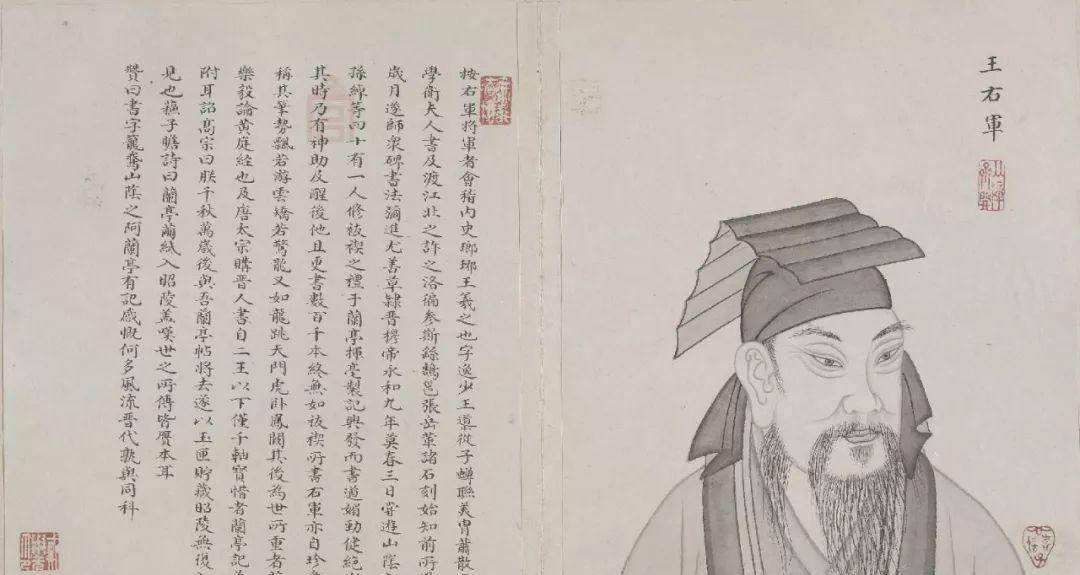 王右軍
按右軍將軍者會稽內史瑯琊王羲之也字逸少王導從子蟬聯美胄蕭散
學衛夫人書及渡江北之許之洛徧參斯繇鵠邕張岳輩諸石刻始知前所
歲月遂師衆碑書法彌進尤善草隸晉穆帝永和九年莫春三日甞遊山陰
孫綽等四十有一人修祓禊之禮于蘭亭揮毫製記興發而書遒媚勁健絕
其時乃有神助及醒後他且更書數百千本終無如祓禊所書右軍亦自珍
稱其筆勢飄若游雲矯若驚龍又如龍跳天門虎卧鳳闕其後為世所重者
樂毅論黃庭經也及唐太宗購晉人書自二王以下僅千軸寶惜者蘭亭記
附耳詔高宗曰朕千秋萬歲後與吾蘭亭帖將去遂以玉匣貯藏昭陵無復
見也蘇子瞻詩曰蘭亭繭紙入昭陵蓋嘆世之所傳皆贋本耳
贊曰書字籠鵞山陰之阿蘭亭有記感慨何多風流晉代孰與同科